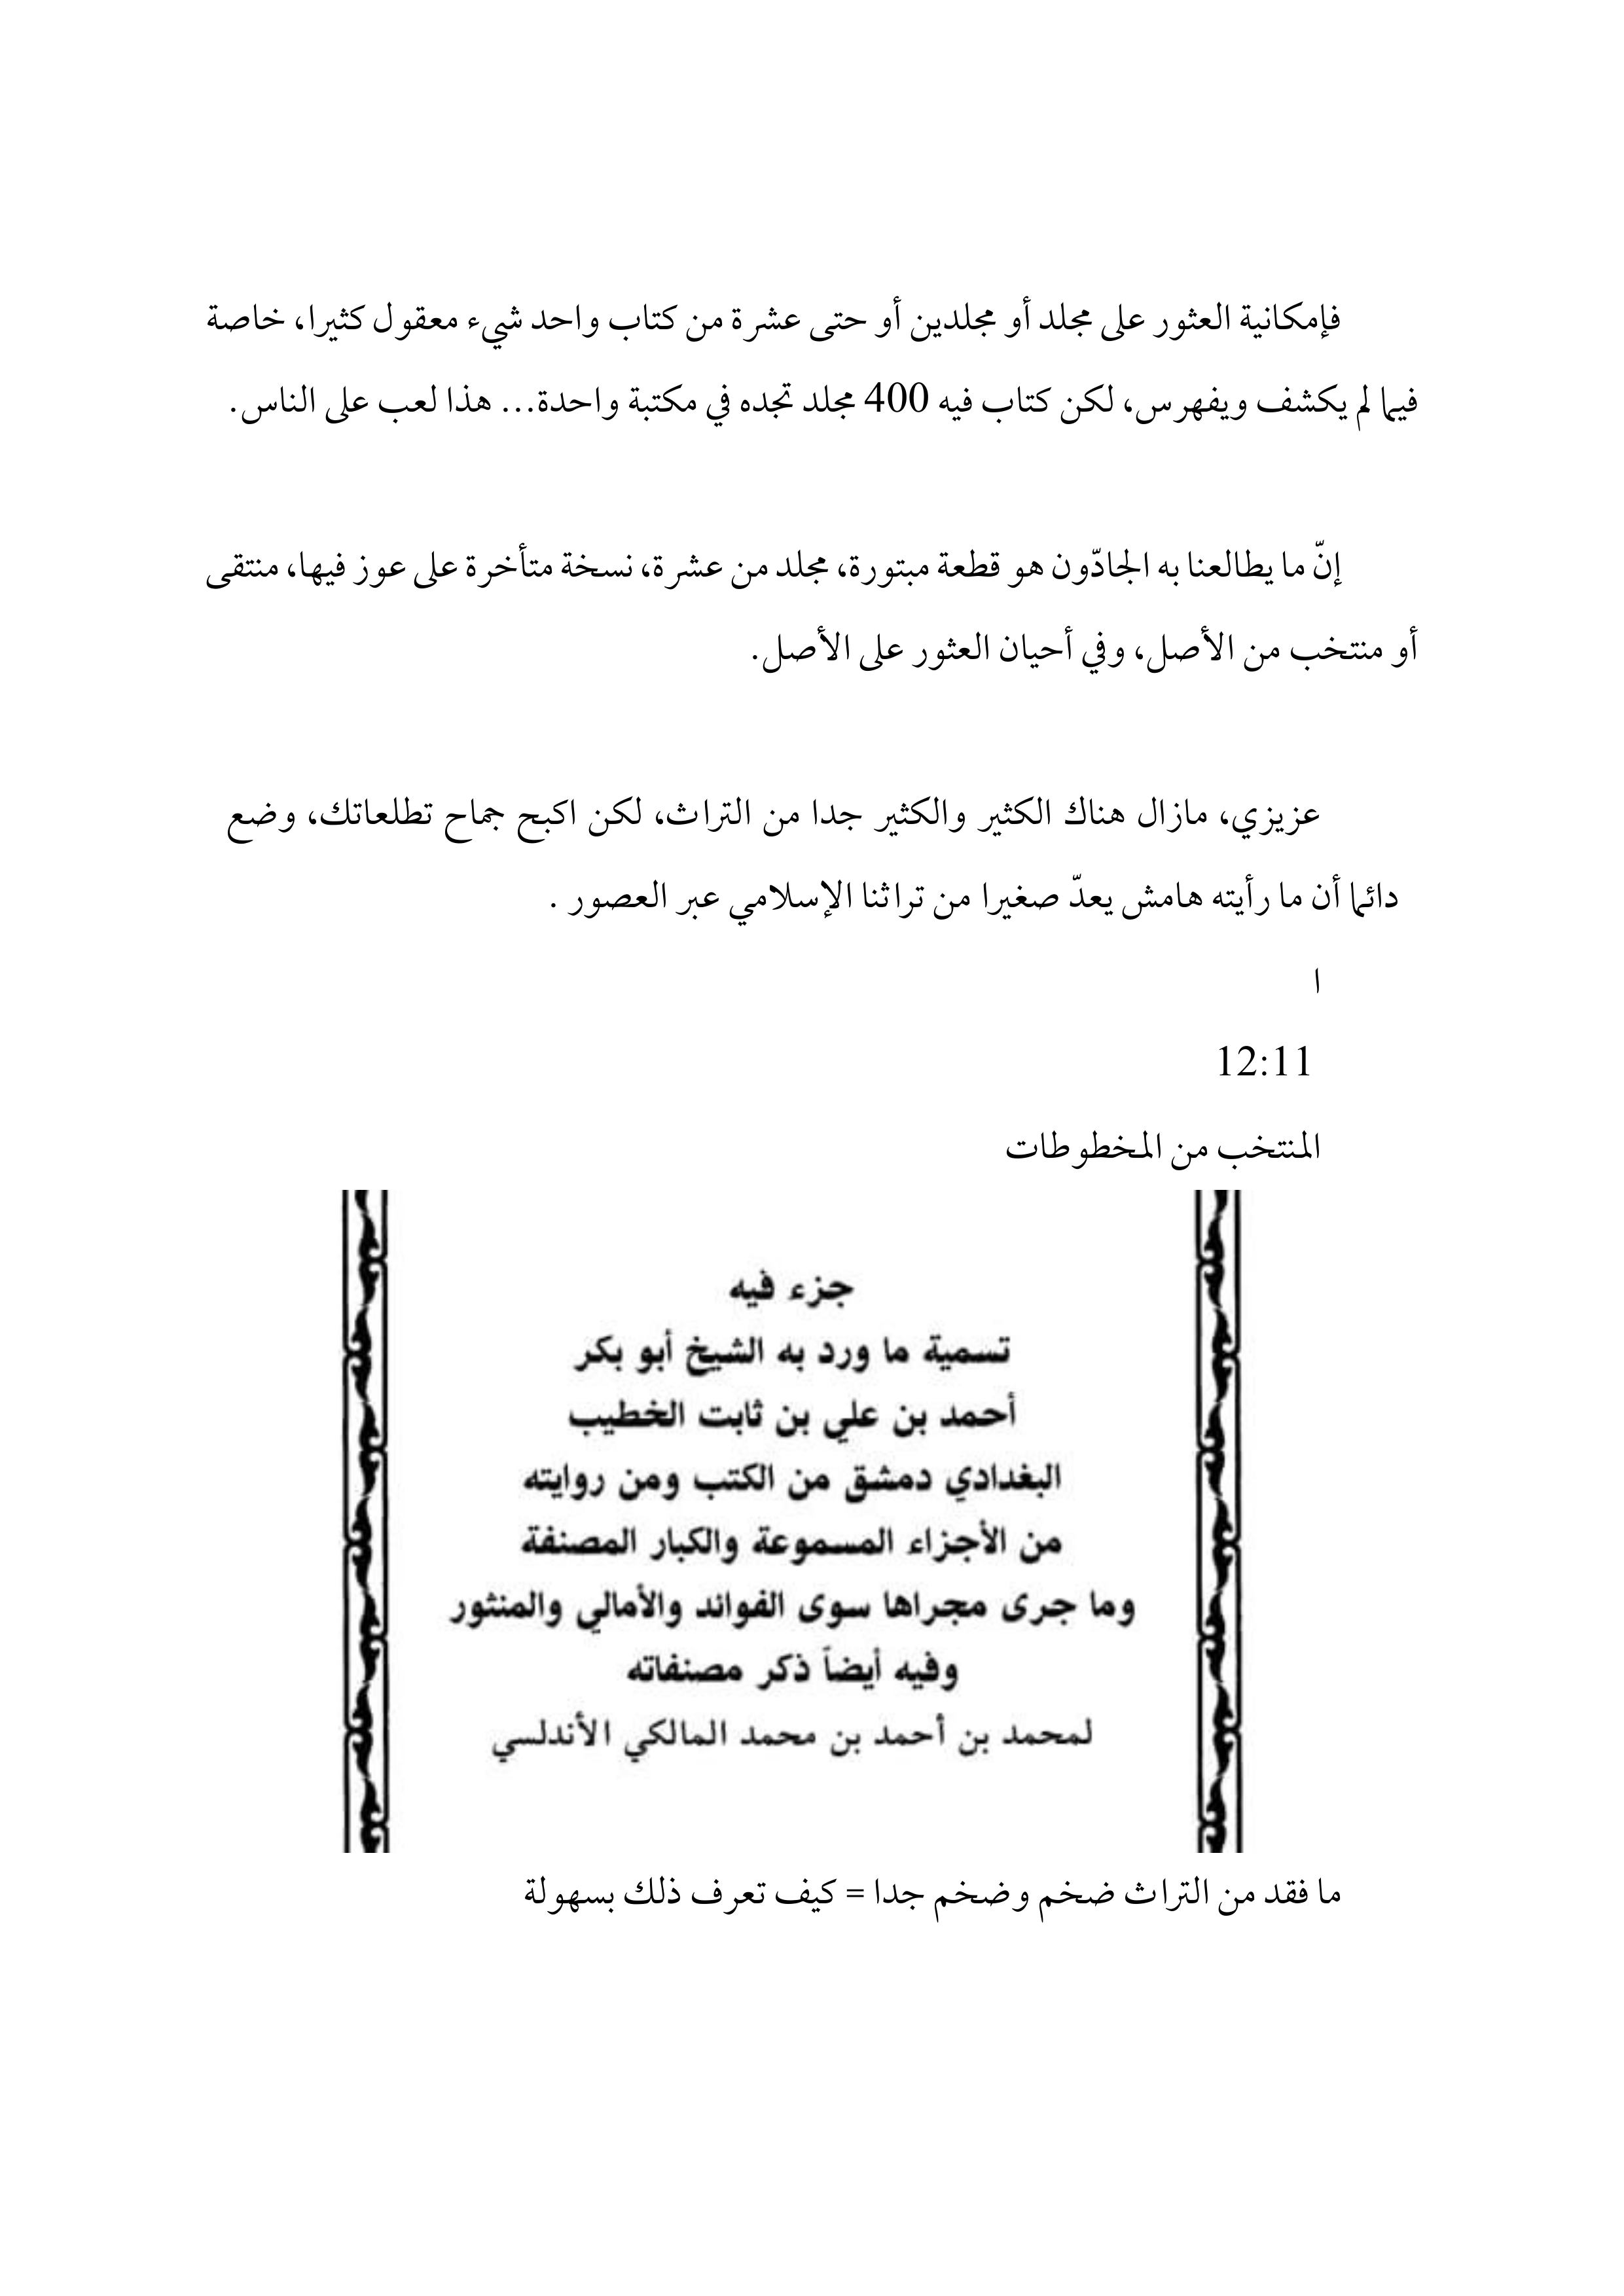 فإمكانية العثور على مجلد أو مجلدين أو حتى عشرة من كتاب واحد شيء معقول كثيرا، خاصة
فيما لم يكشف ويفهرس، لكن كتاب فيه 400 مجلد تجده في مكتبة واحدة... هذا لعب على الناس.
إنّ ما يطالعنا به الجادّون هو قطعة مبتورة، مجلد من عشرة، نسخة متأخرة على عوز فيها، منتقى
أو منتخب من الأصل، وفي أحيان العثور على الأصل.
عزيزي، مازال هناك الكثير والكثير جدا من التراث، لكن اكبح جماح تطلعاتك، وضع
دائما أن ما رأيته هامش يعدّ صغيرا من تراثنا الإسلامي عبر العصور .
ا
12:11
المنتخب من المخطوطات
جزء فيه
تسمية ما ورد به الشيخ أبو بكر
أحمد بن علي بن ثابت الخطيب
البغدادي دمشق من الكتب ومن روايته
من الأجزاء المسموعة والكبار المصنفة
وما جرى مجراها سوى الفوائد والأمالي والمنثور
وفيه أيضاً ذكر مصنفاته
لمحمد بن أحمد بن محمد المالكي الأندلسي
ما فقد من التراث ضخم وضخم جدا = كيف تعرف ذلك بسهولة